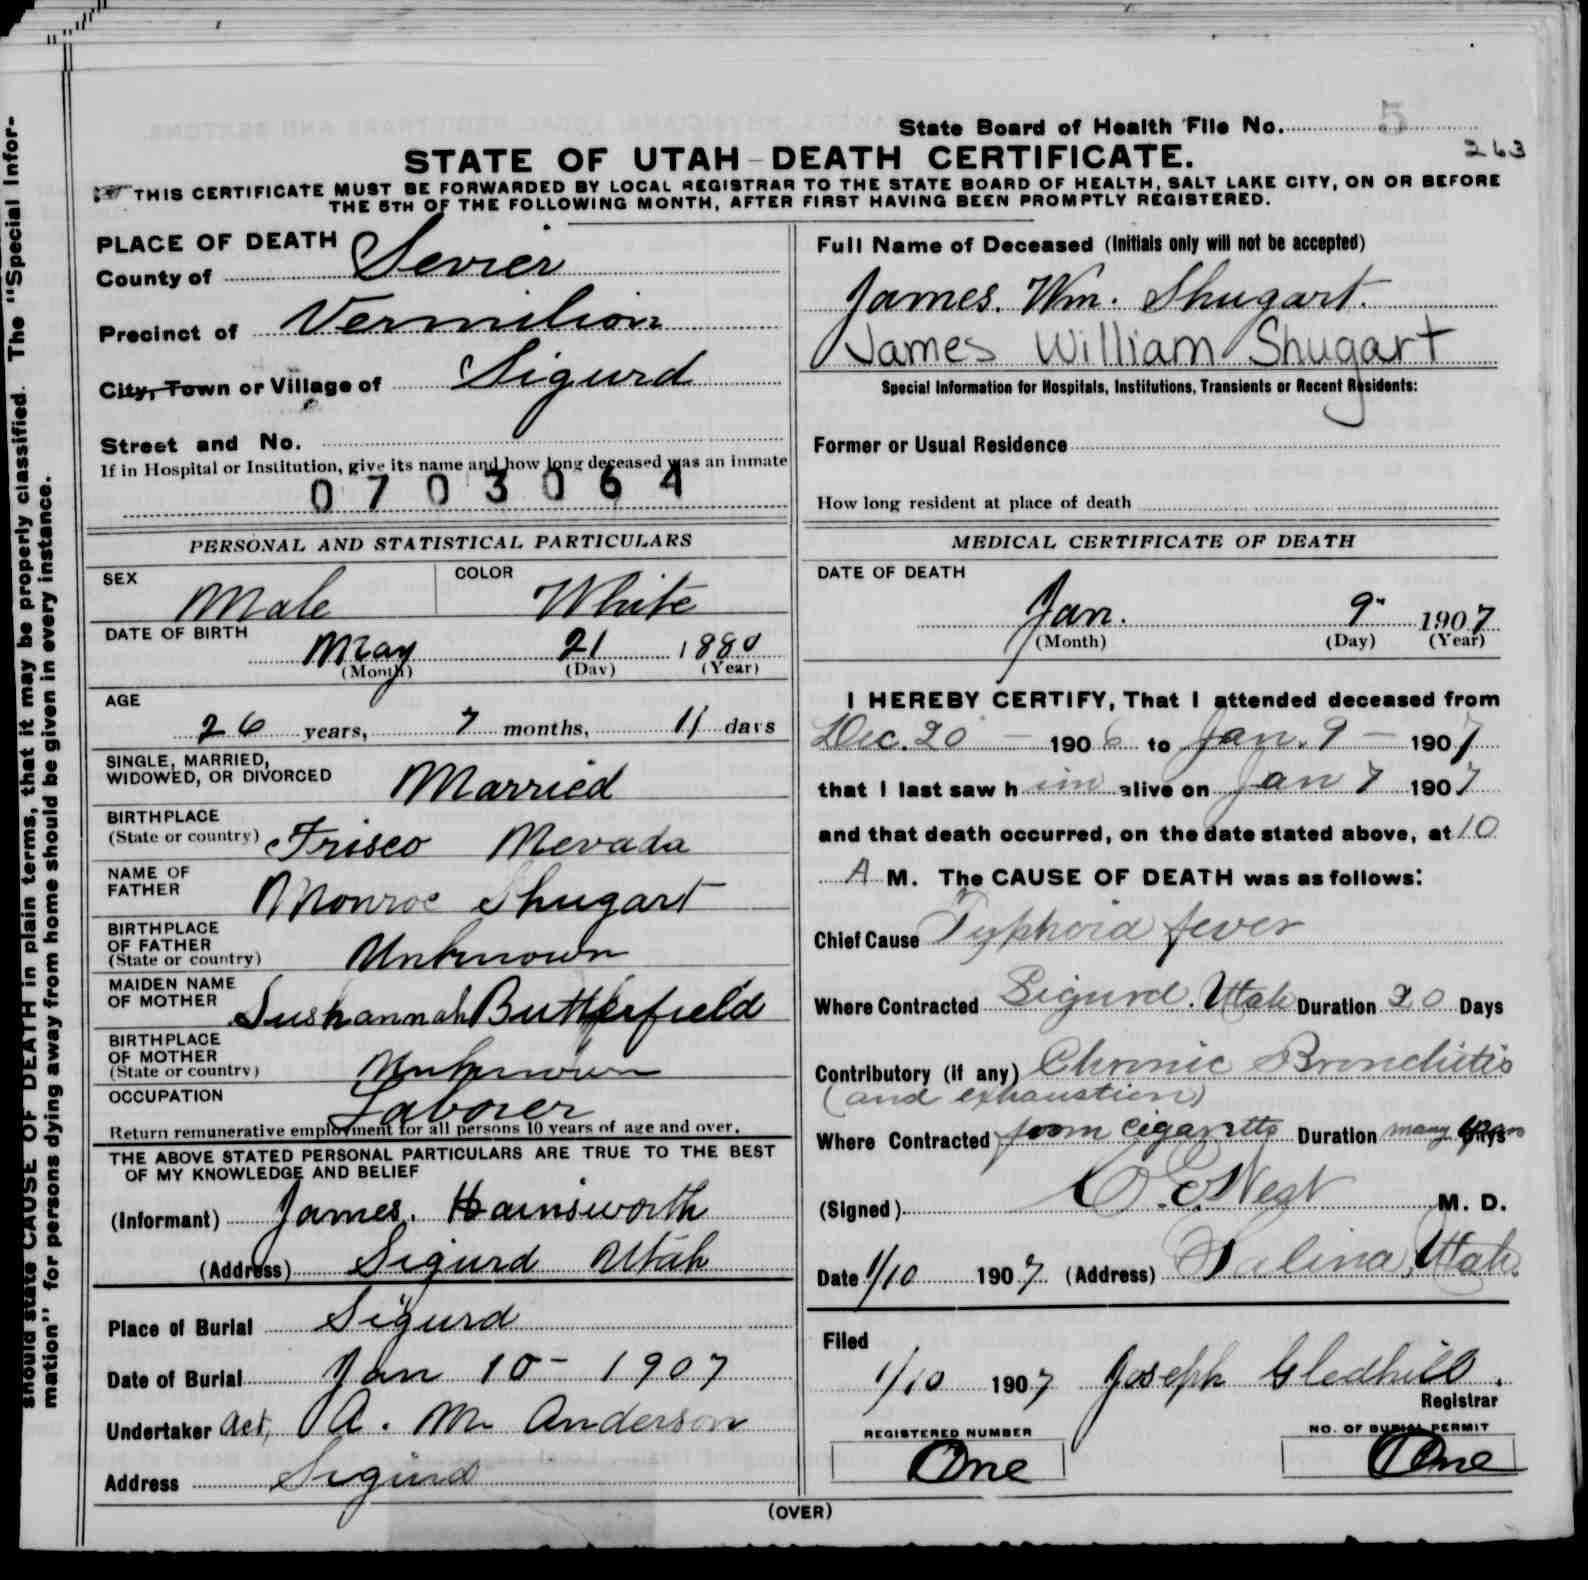 State Board of Health File No. 5
263
STATE OF UTAH - DEATH CERTIFICATE.
THIS CERTIFICATE MUST BE FORWARDED BY LOCAL REGISTRAR TO THE STATE BOARD OF HEALTH, SALT LAKE CITY, ON OR BEFORE
THE 5TH OF THE FOLLOWING MONTH, AFTER FIRST HAVING BEEN PROMPTLY REGISTERED.
PLACE OF DEATH
County of Sevier
Precinct of Vermilion
City, Town or Village of Sigurd
Street and No.
If in Hospital or Institution, give its name and how long deceased was an inmate
0703064
PERSONAL AND STATISTICAL PARTICULARS
SEX Male COLOR White
DATE OF BIRTH May 21 1880
(Month) (Day) (Year)
AGE
26 years, 7 months, 11 days
SINGLE, MARRIED,
WIDOWED, OR DIVORCED Married
BIRTHPLACE
(State or country) Frisco Nevada
NAME OF
FATHER Monroe Shugart
BIRTHPLACE
OF FATHER
(State or country) Unknown
MAIDEN NAME
OF MOTHER Sushannah Butterfield
BIRTHPLACE
OF MOTHER
(State or country) Unknown
OCCUPATION Laborer
Return remunerative employment for all persons 10 years of age and over.
THE ABOVE STATED PERSONAL PARTICULARS ARE TRUE TO THE BEST
OF MY KNOWLEDGE AND BELIEF
(Informant) James. Hainsworth
(Address) Sigurd Utah
Place of Burial Sigurd
Date of Burial Jan 10 - 1907
Undertaker act, A. M. Anderson
Address Sigurd
Full Name of Deceased (Initials only will not be accepted)
James. Wm. Shugart.
James William Shugart
Special Information for Hospitals, Institutions, Transients or Recent Residents:
Former or Usual Residence
How long resident at place of death
MEDICAL CERTIFICATE OF DEATH
DATE OF DEATH
Jan. 9 1907
(Month) (Day) (Year)
I HEREBY CERTIFY, That I attended deceased from
Dec. 20 - 1906 to Jan. 9 - 1907
that I last saw him alive on Jan 7 1907
and that death occurred, on the date stated above, at 10
A M. The CAUSE OF DEATH was as follows:
Chief Cause Typhoid fever
Where Contracted Sigurd. Utah Duration 20 Days
Contributory (if any) Chronic Bronchitis
(and exhaustion)
Where Contracted from cigaretts Duration many Days
(Signed) West M. D.
Date 1/10 1907 (Address) Salina, Utah.
Filed
1/10 1907 Joseph Gledhill.
Registrar
REGISTERED NUMBER
One
NO. OF BURIAL PERMIT
One
(OVER)
should state CAUSE OF DEATH in plain terms, that it may be properly classified. The "Special Infor-
mation" for persons dying away from home should be given in every instance.